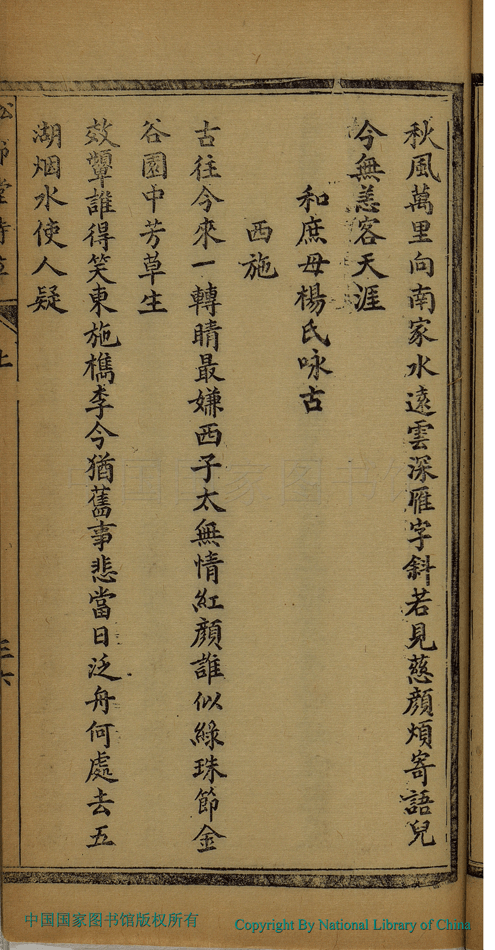 秋風萬里向南家水遠雲深雁字斜若見慈顔煩寄語兒
今無恙客天涯
和庶母楊氏咏古
西施
古往今來一轉睛最嫌西子太無情紅顔誰似綠珠節金
谷園中芳草生
效顰誰得笑東施檇李今猶舊事悲當日泛舟何處去五
湖烟水使人疑
上
三六
中国国家图书馆
中国国家图书馆版权所有
Copyright By National Library of China